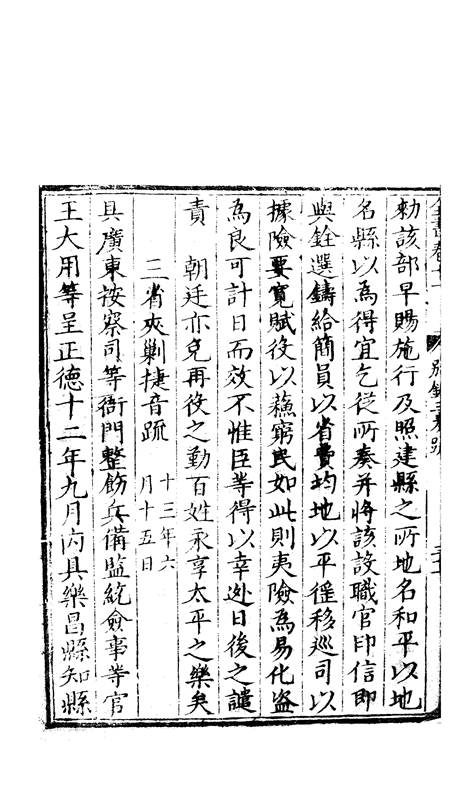 勑該部早賜施行及照建縣之所地名和平以地
名縣以為得宜乞從所奏并將該設職官印信即
與銓選鑄給簡員以省費均地以平徭移巡司以
據險要寬賦役以蘓窮民如此則夷險為易化盗
為良可計日而效不惟臣等得以幸逊日後之譴
責　朝廷亦免再役之勤百姓永享太平之樂矣
三省夾勦捷音疏
十三年六
月十五日
具廣東按察司等衙門整飭兵備監統僉事等官
王大用等呈正德十二年九月内具樂昌縣知縣